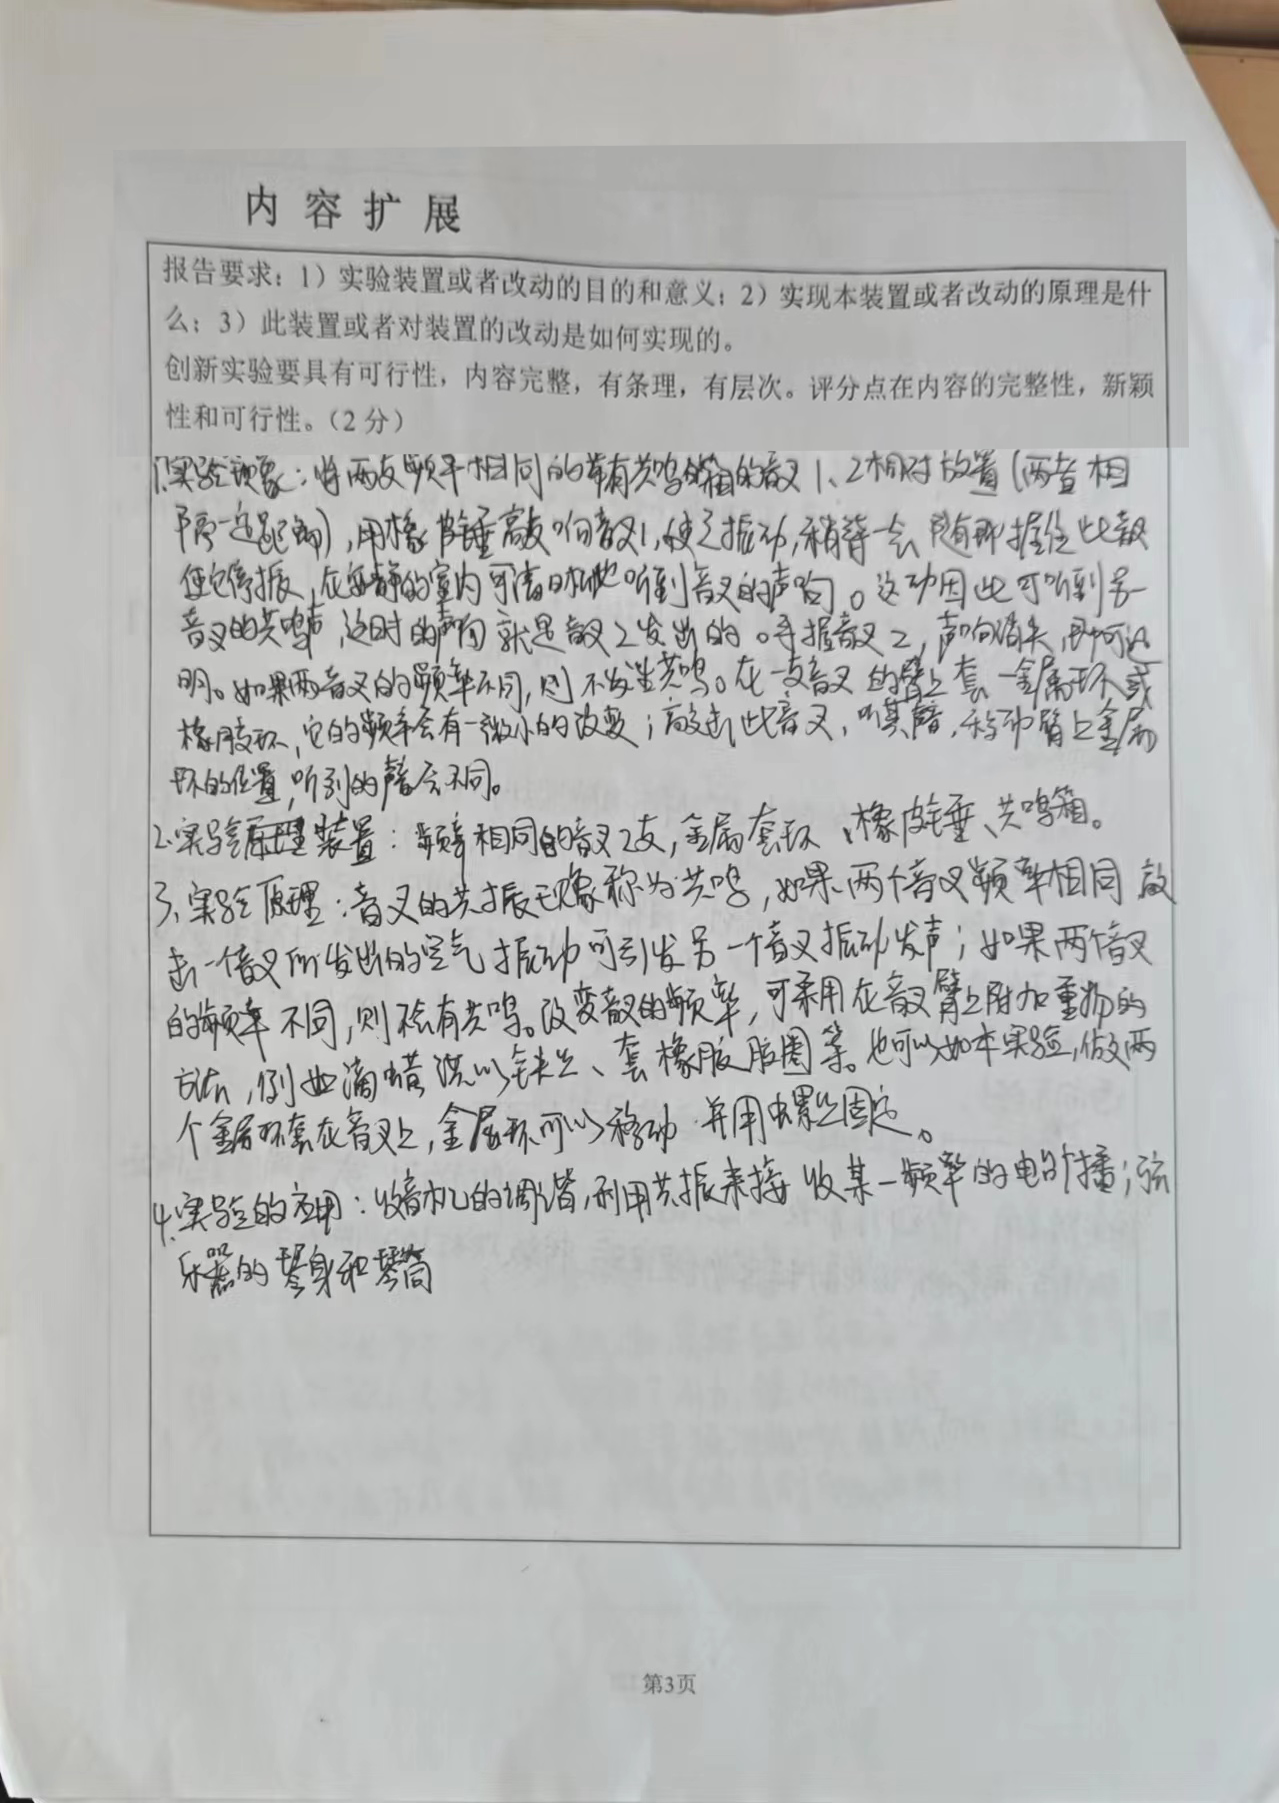 内容扩展
报告要求：1）实验装置或者改动的目的和意义；2）实现本装置或者改动的原理是什
么；3）此装置或者对装置的改动是如何实现的。
创新实验要具有可行性，内容完整，有条理，有层次。评分点在内容的完整性，新颖
性和可行性。（2分）
1.实验现象：将两支频率相同的带有共鸣箱的音叉1、2相对放置（两者相
隔一定距离），用橡皮锤敲响音叉1，使之振动，稍等一会随即握住此音叉
使它停振，在安静的室内可清晰地听到音叉的声响。这功因此可听到另一
音叉的共鸣声，这时的声响就是音叉2发出的。再握音叉2，声响消失，即可证
明。如果两音叉的频率不同，则不发生共鸣。在一支音叉的臂上套一金属环或
橡胶环，它的频率会有一微小的改变；敲击此音叉，听其音，移动臂上金属
环的位置，听到的声音会不同。
2.实验装置：频率相同的音叉2支，金属套环、橡皮锤、共鸣箱。
3、实验原理：音叉的共振现象称为共鸣，如果两个音叉频率相同敲
击一个音叉所发出的空气振动可引发另一个音叉振动发声；如果两个音叉
的频率不同，则不会有共鸣。改变音叉的频率，可采用在音叉臂上附加重物的
方法，例如滴蜡、套橡胶胶圈等。也可以如本实验，做两
个金属环套在音叉上，金属环可以移动并用螺丝固定。
4.实验的应用：收音机的调谐，利用共振来接收某一频率的电台广播；弦
乐器的琴身和琴筒
第3页